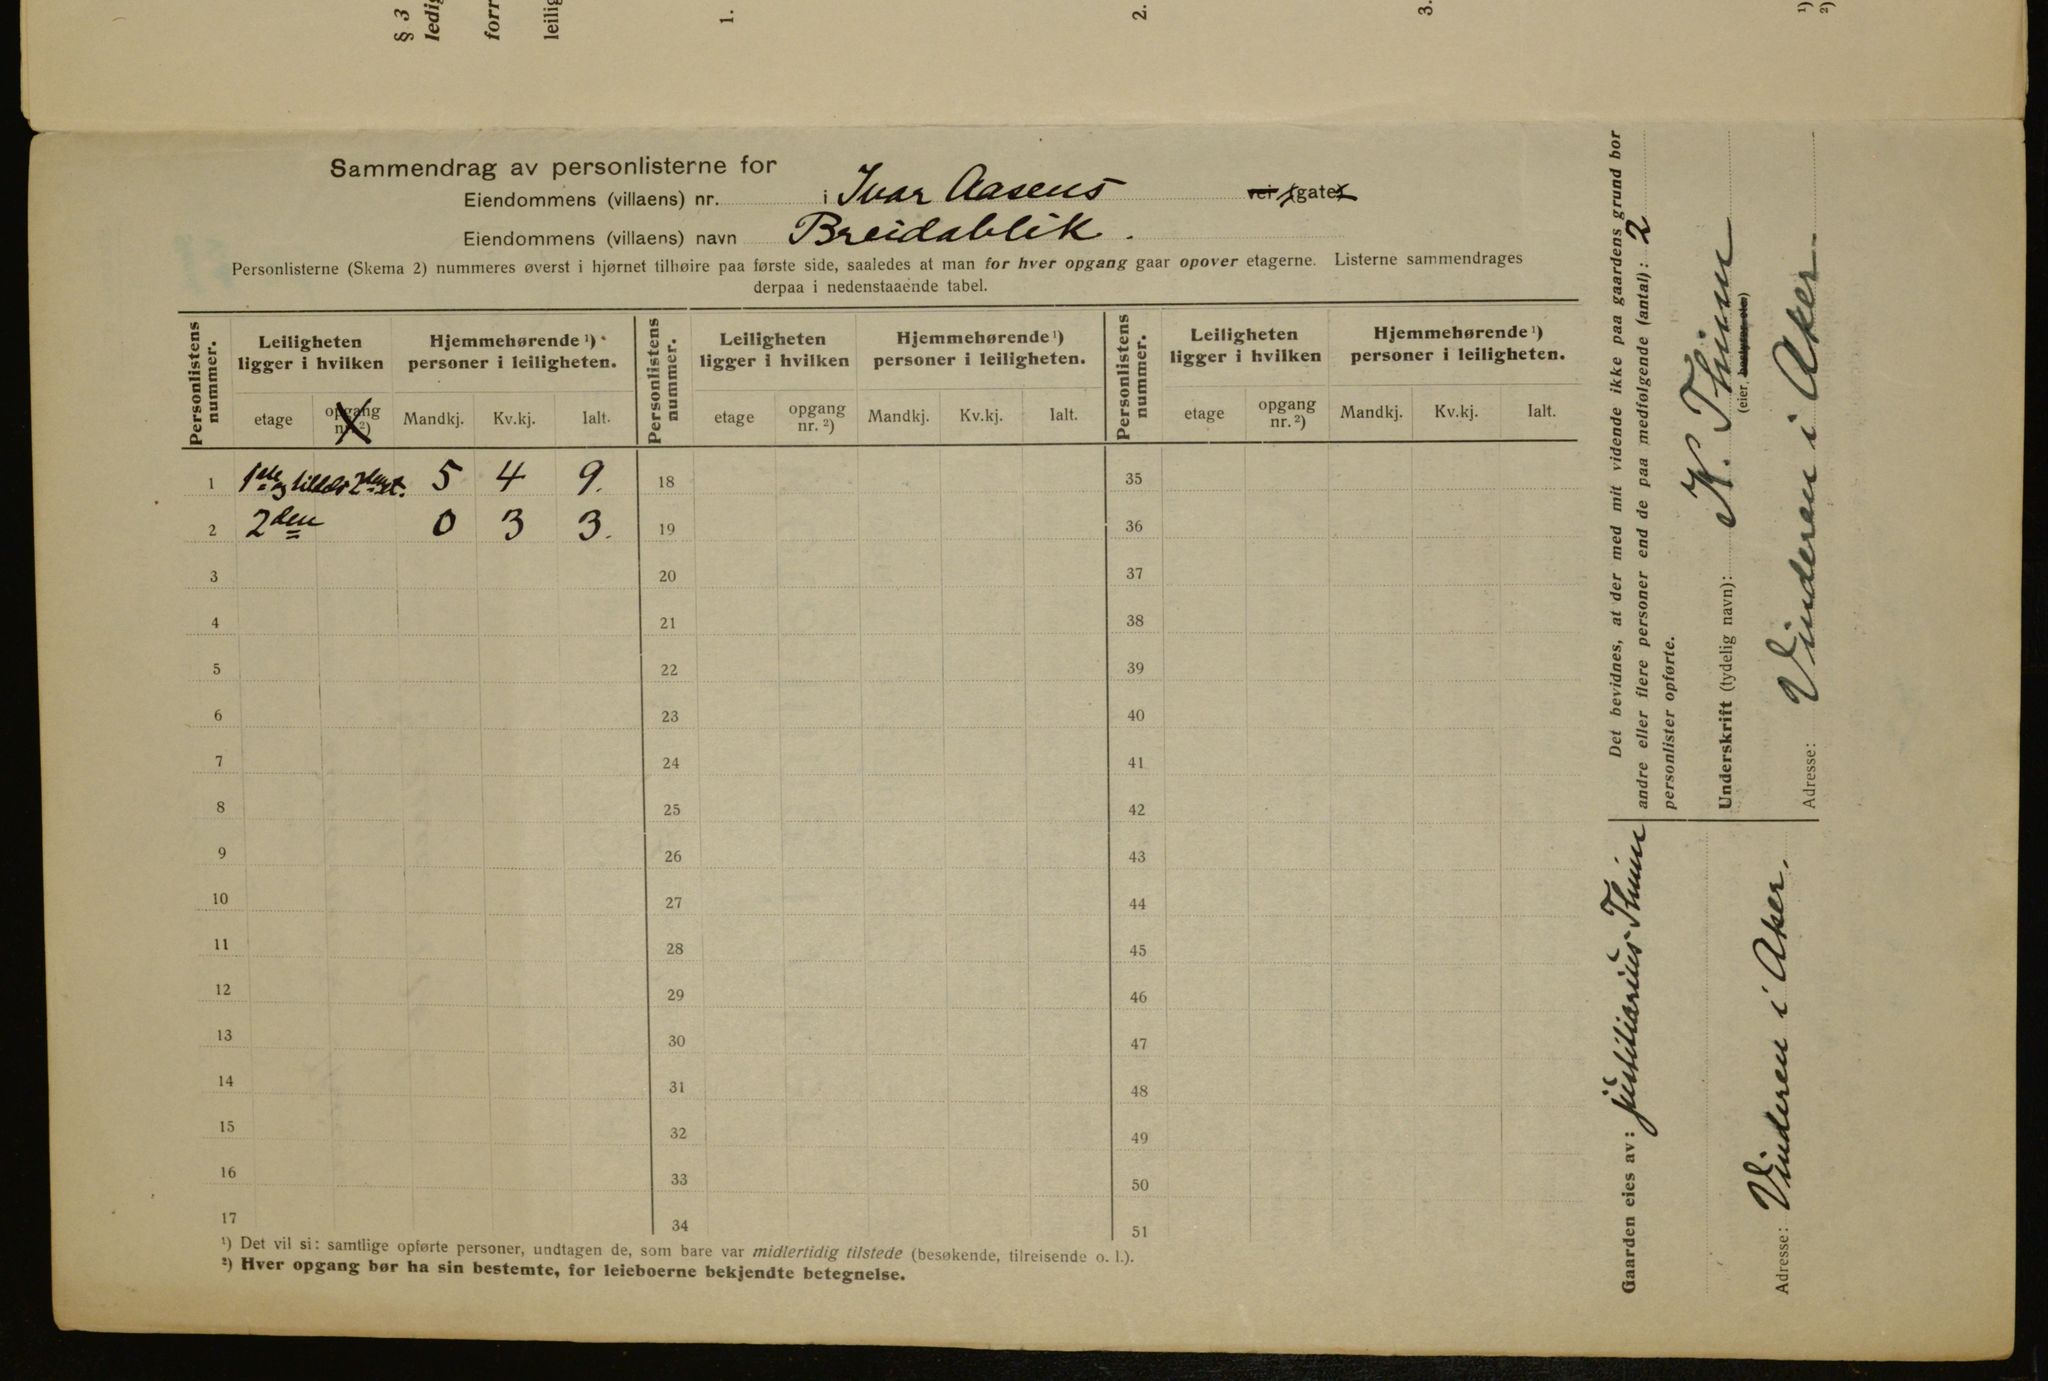 § 3
ledig
forr
leilig
1.
2.
3.
¹)
²)
Sammendrag av personlisterne for
Eiendommens (villaens) nr. i Ivar Aasens vei (gate)
Eiendommens (villaens) navn Breidablik.
Personlisterne (Skema 2) nummeres øverst i hjørnet tilhøire paa første side, saaledes at man for hver opgang gaar opover etagerne. Listerne sammendrages
derpaa i nedenstaaende tabel.
Personlistens nummer. Leiligheten ligger i hvilken Hjemmehørende ¹) personer i leiligheten. Personlistens nummer. Leiligheten ligger i hvilken Hjemmehørende ¹) personer i leiligheten. Personlistens nummer. Leiligheten ligger i hvilken Hjemmehørende ¹) personer i leiligheten.
etage opgang nr. ²) Mandkj. Kv.kj. Ialt. etage opgang nr. ²) Mandkj. Kv.kj. Ialt. etage opgang nr. ²) Mandkj. Kv.kj. Ialt.
1 1ste og 5 4 9. 18 35
2 2den 0 3 3. 19 36
3 20 37
4 21 38
5 22 39
6 23 40
7 24 41
8 25 42
9 26 43
10 27 44
11 28 45
12 29 46
13 30 47
14 31 48
15 32 49
16 33 50
17 34 51
¹) Det vil si: samtlige opførte personer, undtagen de, som bare var midlertidig tilstede (besøkende, tilreisende o. l.).
²) Hver opgang bør ha sin bestemte, for leieboerne bekjendte betegnelse.
Det bevidnes, at der med mit vidende ikke paa gaardens grund bor
andre eller flere personer end de paa medfølgende (antal): 2
personlister opførte.
Underskrift (tydelig navn): K. Thinn
(eier, bestyrer etc)
Adresse: Vinderen i Aker.
Gaarden eies av: justitiarius Thinn
Adresse: Vinderen i Aker.